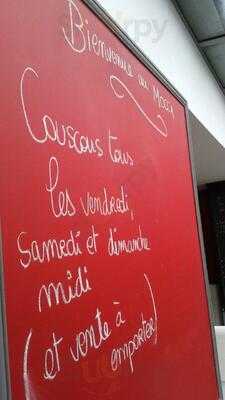 Bienvenue au Mogo
Couscous tous
les vendredi,
Samedi et dimanche
midi
(et vente à
emporter)